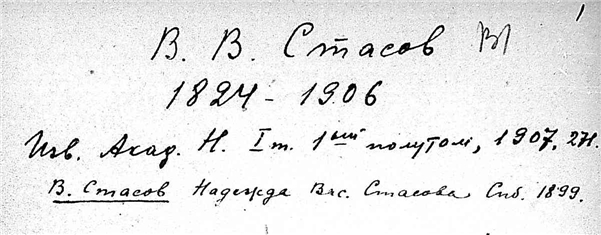 В. В. Стасов
1824 - 1906
Изв. Акад. Н. I т. 1ый полутом, 1907,
В. Стасов Надежда Вас. Стасова Спб. 1899.